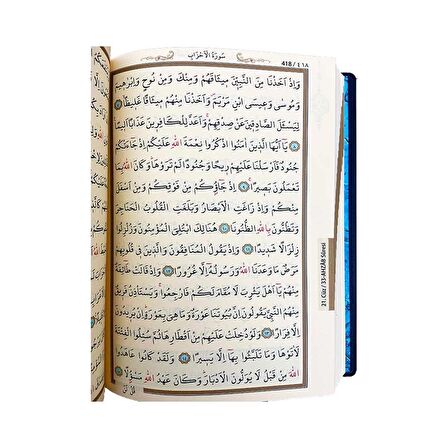 سُورَةُ الْأَحْزَابِ
418 / ٤١٨
وَاِذْ اَخَذْنَا مِنَ النَّبِيّٖنَ مٖيثَاقَهُمْ وَمِنْكَ وَمِنْ نُوحٍ وَاِبْرٰهٖيمَ
وَمُوسٰى وَعٖيسَى ابْنِ مَرْيَمَ وَاَخَذْنَا مِنْهُمْ مٖيثَاقًا غَلٖيظًا ﴿٧﴾
لِيَسْـَٔلَ الصَّادِقٖينَ عَنْ صِدْقِهِمْ وَاَعَدَّ لِلْكَافِرٖينَ عَذَابًا اَلٖيمًا ﴿٨﴾
يَٓا اَيُّهَا الَّذٖينَ اٰمَنُوا اذْكُرُوا نِعْمَةَ اللّٰهِ عَلَيْكُمْ اِذْ جَٓاءَتْكُمْ
جُنُودٌ فَاَرْسَلْنَا عَلَيْهِمْ رٖيحًا وَجُنُودًا لَمْ تَرَوْهَا وَكَانَ اللّٰهُ بِمَا
تَعْمَلُونَ بَصٖيرًا ﴿٩﴾ اِذْ جَٓاؤُ۫كُمْ مِنْ فَوْقِكُمْ وَمِنْ اَسْفَلَ
مِنْكُمْ وَاِذْ زَاغَتِ الْاَبْصَارُ وَبَلَغَتِ الْقُلُوبُ الْحَنَاجِرَ
وَتَظُنُّونَ بِاللّٰهِ الظُّنُونَا ﴿١٠﴾ هُنَالِكَ ابْتُلِيَ الْمُؤْمِنُونَ وَزُلْزِلُوا
زِلْزَالًا شَدٖيدًا ﴿١١﴾ وَاِذْ يَقُولُ الْمُنَافِقُونَ وَالَّذٖينَ فٖي قُلُوبِهِمْ
مَرَضٌ مَا وَعَدَنَا اللّٰهُ وَرَسُولُهُٓ اِلَّا غُرُورًا ﴿١٢﴾ وَاِذْ قَالَتْ طَٓائِفَةٌ
مِنْهُمْ يَٓا اَهْلَ يَثْرِبَ لَا مُقَامَ لَكُمْ فَارْجِعُوا وَيَسْتَأْذِنُ فَرٖيقٌ
مِنْهُمُ النَّبِيَّ يَقُولُونَ اِنَّ بُيُوتَنَا عَوْرَةٌ وَمَا هِيَ بِعَوْرَةٍ اِنْ يُرٖيدُونَ
اِلَّا فِرَارًا ﴿١٣﴾ وَلَوْ دُخِلَتْ عَلَيْهِمْ مِنْ اَقْطَارِهَا ثُمَّ سُئِلُوا الْفِتْنَةَ
لَاٰتَوْهَا وَمَا تَلَبَّثُوا بِهَٓا اِلَّا يَسٖيرًا ﴿١٤﴾ وَلَقَدْ كَانُوا عَاهَدُوا
اللّٰهَ مِنْ قَبْلُ لَا يُوَلُّونَ الْاَدْبَارَ وَكَانَ عَهْدُ اللّٰهِ مَسْؤُ۫لًا ﴿١٥﴾
21. Cüz / 33-AHZÂB Sûresi